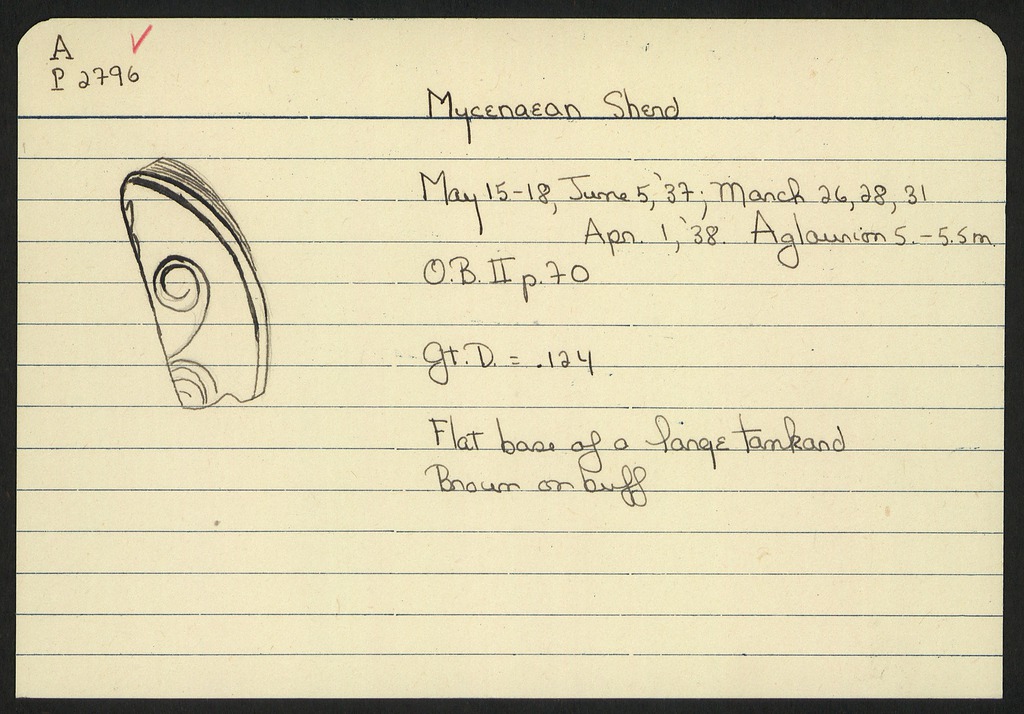 A
P 2796
Mycenaean Sherd
May 15-18, June 5, '37; March 26, 28, 31
Apr. 1, '38. Aglaurion 5.-5.5m.
O.B. II p. 70
Gt. D. = .124
Flat base of a large tankard
Brown on buff